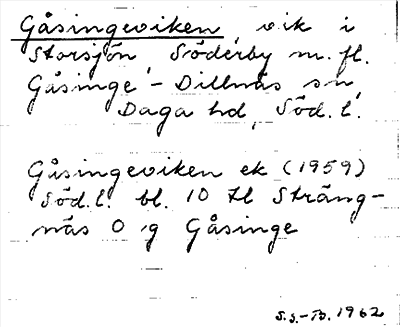 Gåsingeviken, vik i
Storsjön, Söderby m. fl.
Gåsinge-Dillnäs sn,
Daga hd, Söd. l.
Gåsingeviken ek (1959)
Söd. l. bl. 10 tl Sträng-
näs O g Gåsinge
S.S.-B. 1962